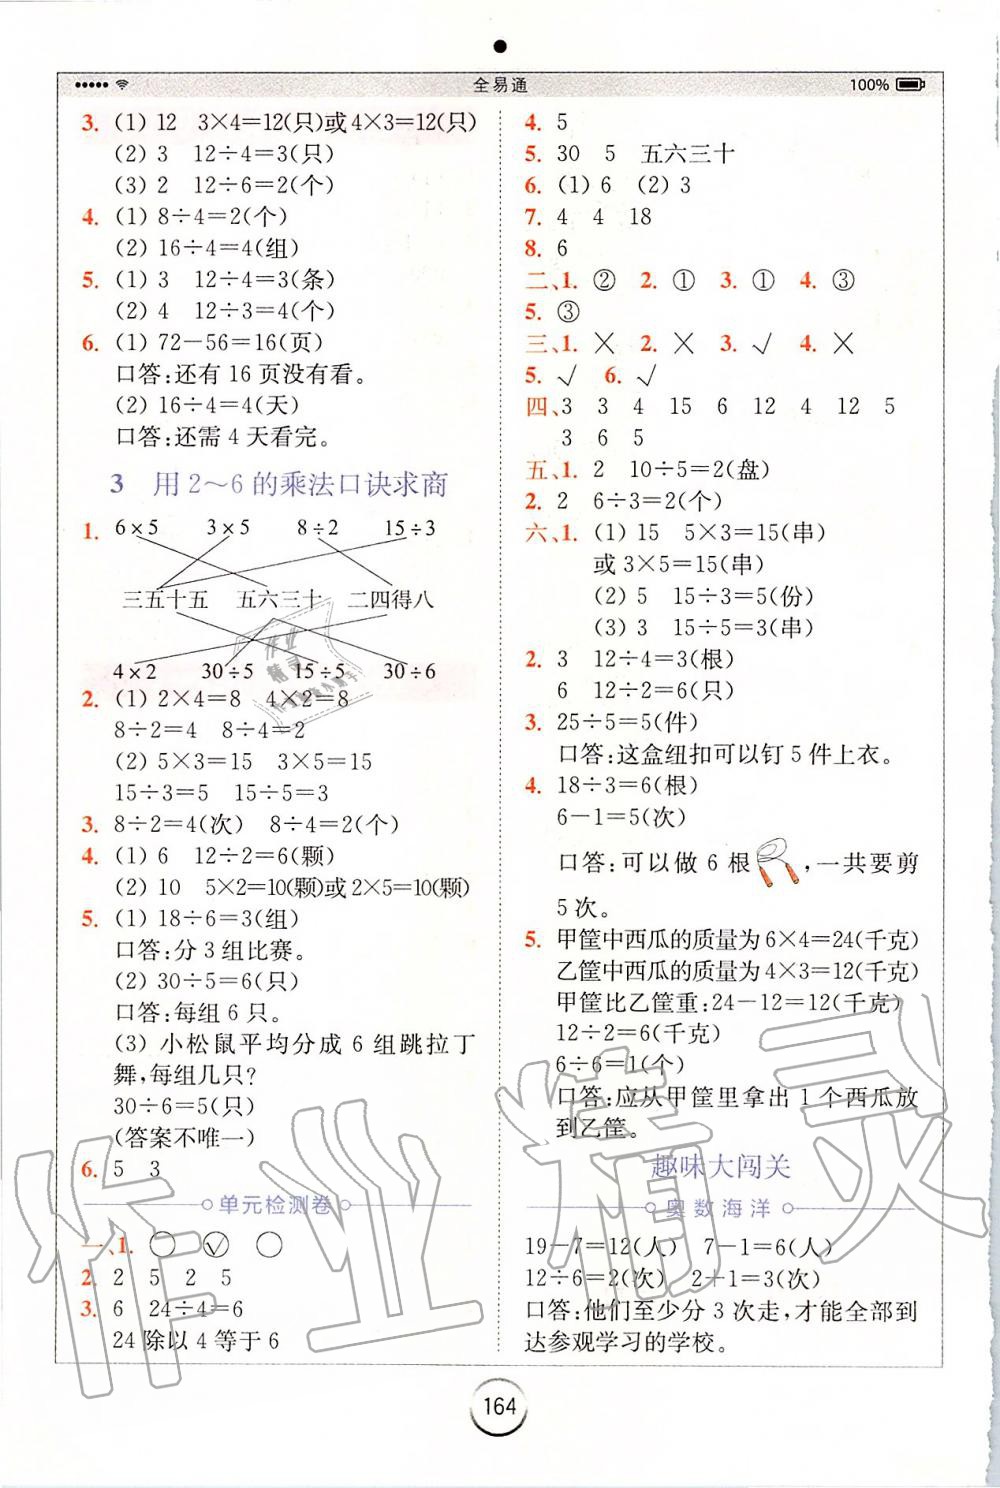 全易通
100%
3. (1) 12　3×4=12(只)或4×3=12(只)
(2) 3　12÷4=3(只)
(3) 2　12÷6=2(个)
4. (1) 8÷4=2(个)
(2) 16÷4=4(组)
5. (1) 3　12÷4=3(条)
(2) 4　12÷3=4(个)
6. (1) 72-56=16(页)
口答:还有16页没有看。
(2) 16÷4=4(天)
口答:还需4天看完。
3　用2～6的乘法口诀求商
1. 6×5　3×5　8÷2　15÷3
三五十五　五六三十　二四得八
4×2　30÷5　15÷5　30÷6
2. (1) 2×4=8　4×2=8
8÷2=4　8÷4=2
(2) 5×3=15　3×5=15
15÷3=5　15÷5=3
3. 8÷2=4(次)　8÷4=2(个)
4. (1) 6　12÷2=6(颗)
(2) 10　5×2=10(颗)或2×5=10(颗)
5. (1) 18÷6=3(组)
口答:分3组比赛。
(2) 30÷5=6(只)
口答:每组6只。
(3) 小松鼠平均分成6组跳拉丁
舞,每组几只?
30÷6=5(只)
(答案不唯一)
6. 5　3
单元检测卷
一、1. ○　√　○
2. 2　5　2　5
3. 6　24÷4=6
24除以4等于6
4. 5
5. 30　5　五六三十
6. (1) 6　(2) 3
7. 4　4　18
8. 6
二、1. ②　2. ①　3. ①　4. ③
5. ③
三、1. ×　2. ×　3. √　4. ×
5. √　6. √
四、3　3　4　15　6　12　4　12　5
3　6　5
五、1. 2　10÷5=2(盘)
2. 2　6÷3=2(个)
六、1. (1) 15　5×3=15(串)
或3×5=15(串)
(2) 5　15÷3=5(份)
(3) 3　15÷5=3(串)
2. 3　12÷4=3(根)
6　12÷2=6(只)
3. 25÷5=5(件)
口答:这盒纽扣可以钉5件上衣。
4. 18÷3=6(根)
6-1=5(次)
口答:可以做6根　,一共要剪
5次。
5. 甲筐中西瓜的质量为6×4=24(千克)
乙筐中西瓜的质量为4×3=12(千克)
甲筐比乙筐重:24-12=12(千克)
12÷2=6(千克)
6÷6=1(个)
口答:应从甲筐里拿出1个西瓜放
到乙筐。
趣味大闯关
奥数海洋
19-7=12(人)　7-1=6(人)
12÷6=2(次)　2+1=3(次)
口答:他们至少分3次走,才能全部到
达参观学习的学校。
164
作业精灵